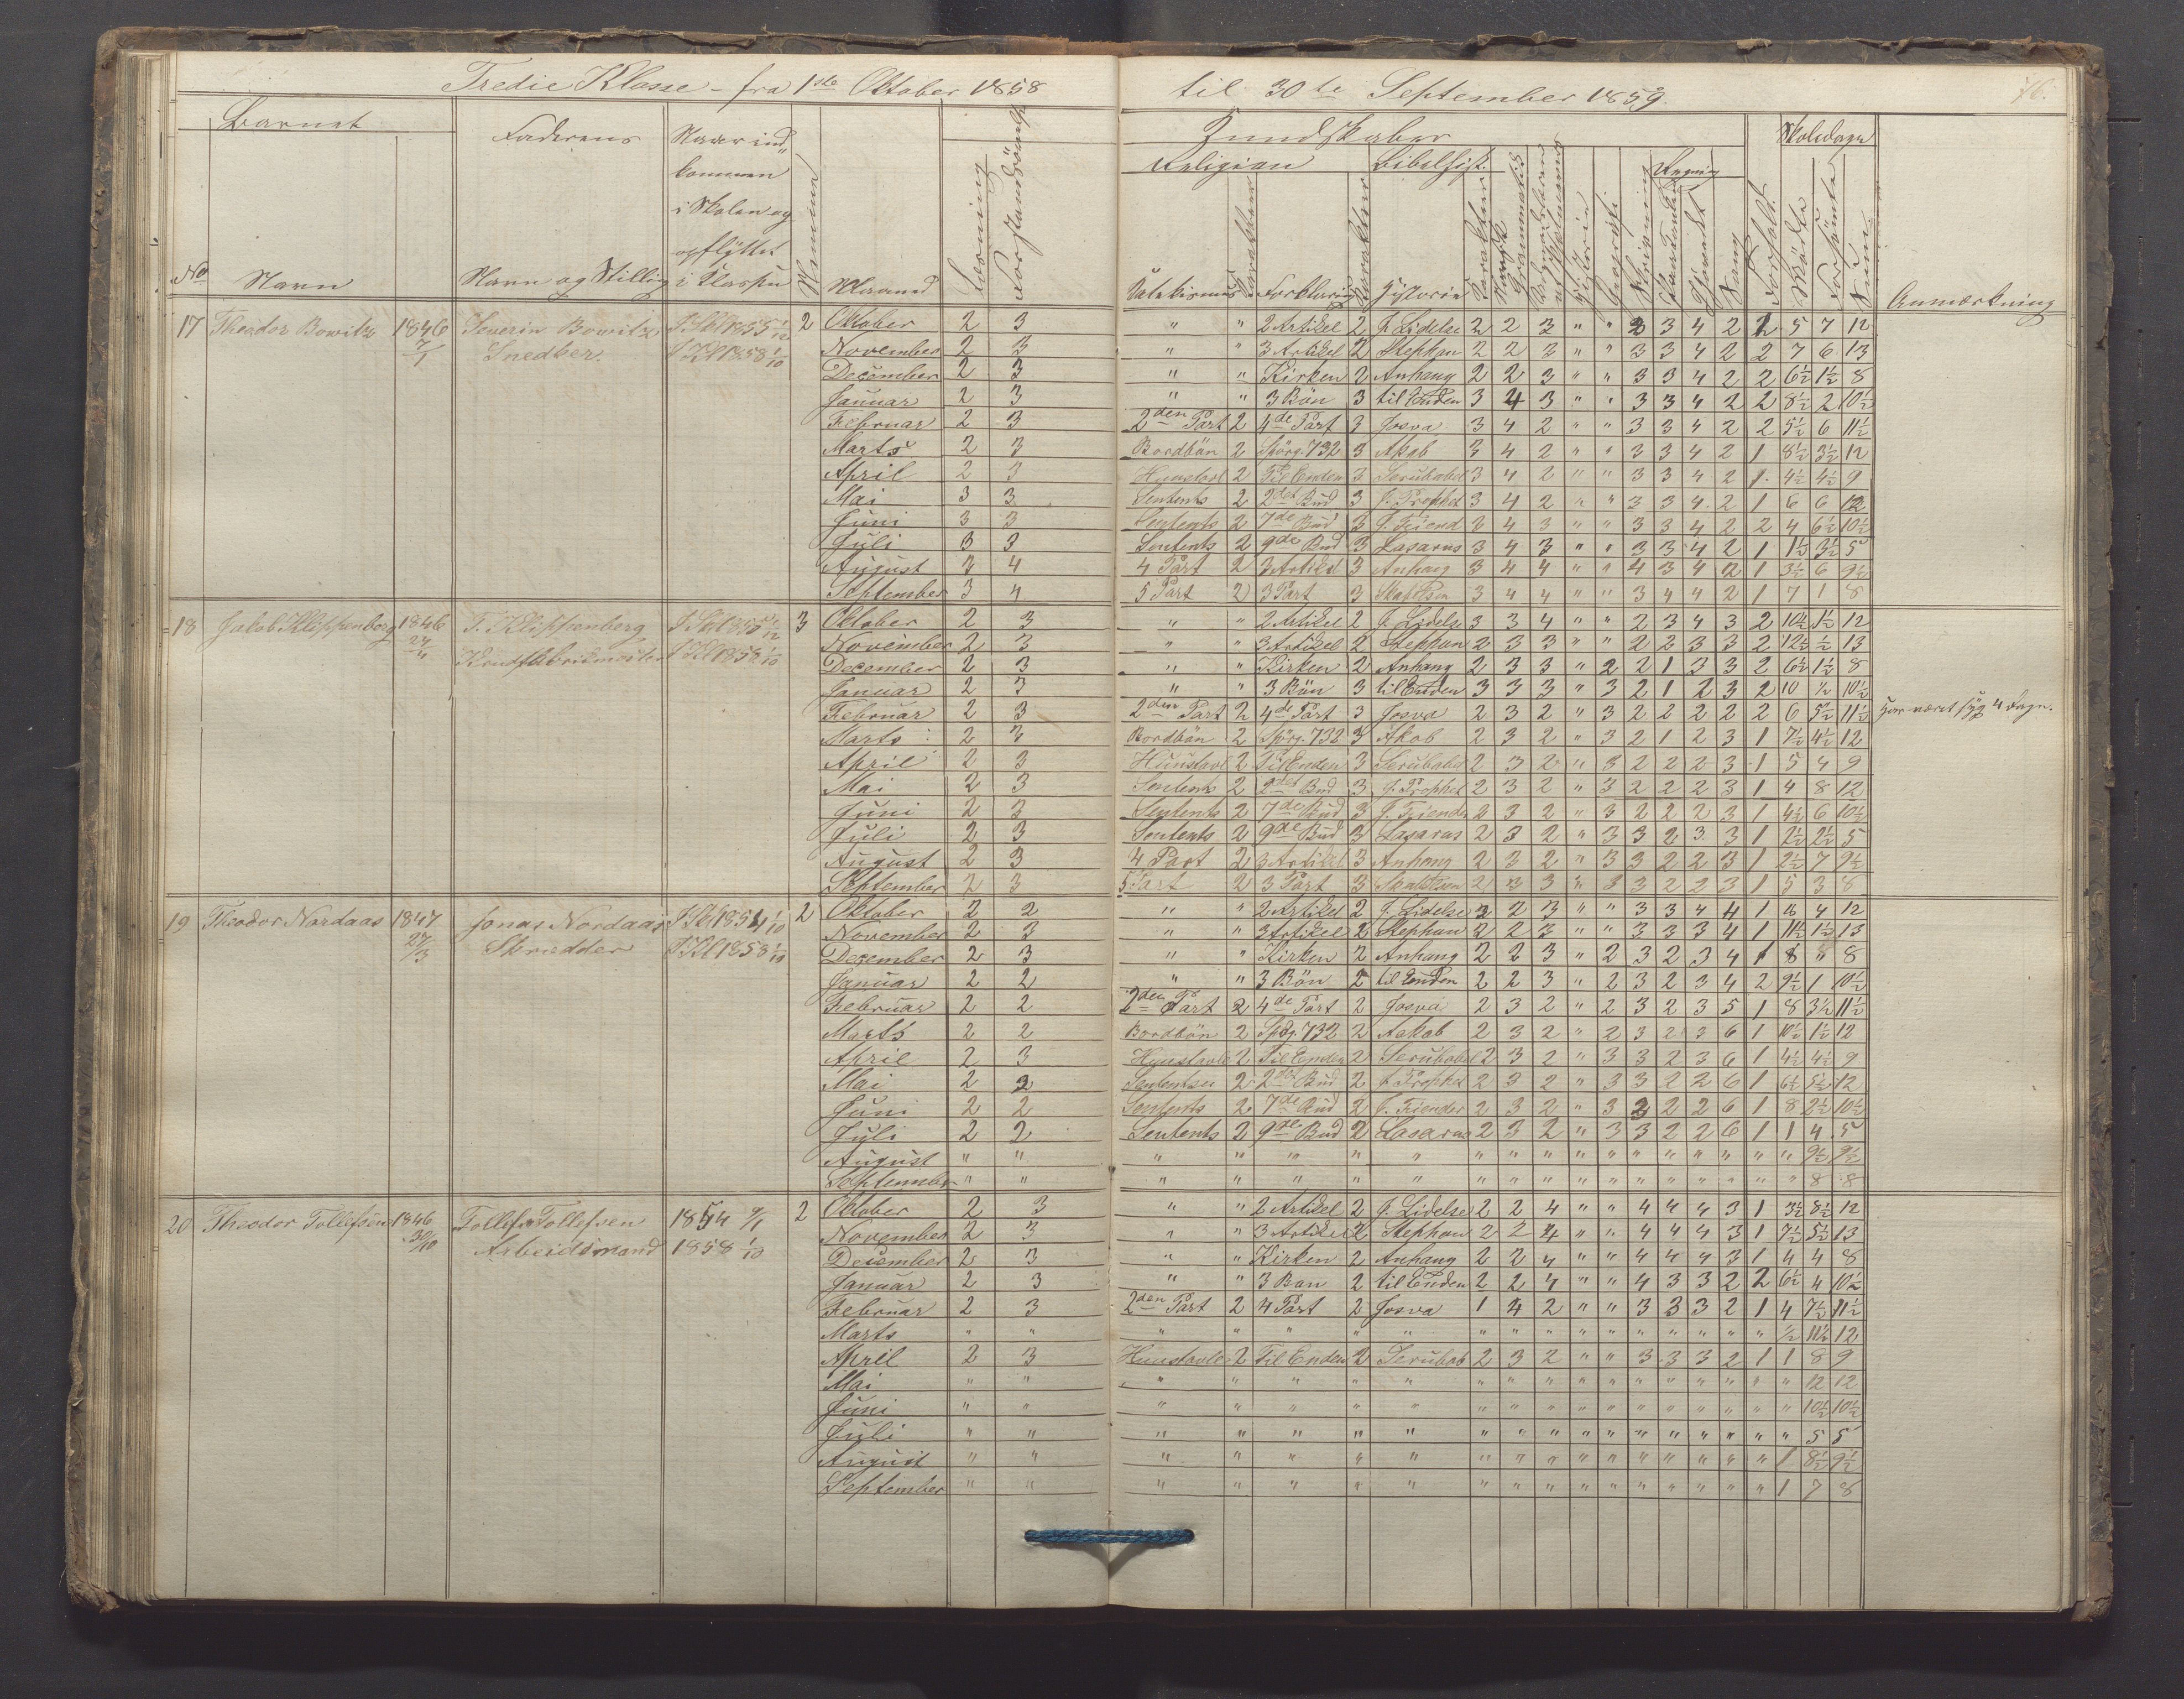 Tredie Klasse - fra 1ste Oktober 1858 til 30te September 1859.
76.
Barnet Faderens Naar ind„ Kundskaber Skoledage
kommen Religion Bibelhist. Regning
i Skolen og
opflyttet
No Navn Navn og Stilling i Klassen Maaned Katekismus Forklaring Historie Anmærkning
17 Theodor Bowitz 1846 7/1 Severin Bowitz Snedker. I Skl 1855 1/12 I Kl 1858 1/10 2
Oktober 2 3 " " 2 Artikel 2 J. Lidelse 2 2 3 " " 3 3 4 2 2 5 7 12
November 2 3 " " 3 Artikel 2 Stephan 2 2 3 " " 3 3 4 2 2 7 6 13
December 2 3 " " Kirken 2 Anhang 2 2 3 " " 3 3 4 2 2 6½ 1½ 8
Januar 2 3 " " 3 Bön 3 til Enden 3 4 3 " " 3 3 4 2 2 8½ 2 10½
Februar 2 3 2den Part 2 4de Part 3 Josva 3 4 2 " " 3 3 4 2 2 5½ 6 11½
Marts 2 3 Bordbön 2 Spörg. 732 3 Akab 3 4 2 " " 3 3 4 2 1 8½ 3½ 12
April 2 3 Hunstavl 2 Til Enden 3 Serubabel 3 4 2 " " 3 3 4 2 1 4½ 4½ 9
Mai 3 3 Sentents 2 2det Bud 3 J. Prophet 3 4 2 " " 3 3 4 2 1 6 6 12
Juni 3 3 Sentents 2 7de Bud 3 J. Fiend 3 4 3 " " 3 3 4 2 2 4 6½ 10½
Juli 3 3 Sentents 2 9de Bud 3 Lasarus 3 4 3 " " 3 3 4 2 1 1½ 3½ 5
August 3 4 4 Part 2 3 Artikel 3 Anhang 3 4 4 " " 4 3 4 2 1 3½ 6 9½
September 3 4 5 Part 2 3 Part 3 Skabelsen 3 4 4 " " 3 4 4 2 1 7 1 8
18 Jakob Klippenberg 1846 24/11 J. Klippenberg I Skl 1850 1/12 I Kl 1858 1/10 3
Oktober 2 3 " " 2 Artikel 2 J. Lidelse 3 3 4 " " 2 3 4 3 2 10½ 1½ 12
November 2 3 " " 3 Artikel 2 Stephan 2 3 3 " " 2 2 3 3 2 12½ ½ 13
December 2 3 " " Kirken 2 Anhang 2 3 3 " 2 2 1 3 3 2 6½ 1½ 8
Januar 2 3 " " 3 Bön 3 til Enden 3 3 3 " 3 2 1 2 3 2 10 ½ 10½
Februar 2 3 2den Part 2 4de Part 3 Josva 2 3 2 " 3 2 2 2 2 2 6 5½ 11½ Har været syg 4 Dage.
Marts 2 3 Bordbön 2 Spörg. 732 3 Akab 2 3 2 " 3 2 1 2 3 1 7½ 4½ 12
April 2 3 Hunstavl 2 Til Enden 3 Serubabel 2 3 2 " 3 2 2 2 3 1 5 4 9
Mai 2 3 Sentents 2 2det Bud 3 J. Prophet 2 3 2 " 3 2 2 2 3 1 4 8 12
Juni 2 3 Sentents 2 7de Bud 3 J. Fiender 2 3 2 " 3 2 2 2 3 1 4½ 6 10½
Juli 2 3 Sentents 2 9de Bud 3 Lasarus 2 3 2 " 3 3 2 3 3 1 2½ 2½ 5
August 2 3 4 Part 2 3 Artikel 3 Anhang 2 3 2 " 3 3 2 2 3 1 2½ 7 9½
September 2 3 5 Part 2 3 Part 3 Skabelsen 2 3 3 " 3 3 2 2 3 1 5 3 8
19 Theodor Nordaas 1847 27/3 Jonas Nordaas Skrædder I Skl 1854 1/10 I Kl 1858 1/10 2
Oktober 2 2 " " 2 Artikel 2 J. Lidelse 2 2 3 " " 3 3 4 4 1 8 4 12
November 2 3 " " 3 Artikel 2 Stephan 2 2 3 " " 3 3 3 4 1 11½ 1½ 13
December 2 3 " " Kirken 2 Anhang 2 2 3 " 2 3 2 3 4 1 8 " 8
Januar 2 2 " " 3 Bön 2 til Enden 2 2 3 " 2 3 2 3 4 2 9½ 1 10½
Februar 2 2 2den Part 2 4de Part 2 Josva 2 3 2 " 2 3 2 3 5 1 8 3½ 11½
Marts 2 2 Bordbön 2 Spörg. 732 2 Aakab 2 3 2 " 2 3 2 3 6 1 10½ 1½ 12
April 2 3 Hunstavle 2 Til Enden 2 Serubabel 2 3 2 " 3 3 2 3 6 1 4½ 4½ 9
Mai 2 2 Sententser 2 2det Bud 2 J. Prophet 2 3 2 " 3 3 2 2 6 1 6½ 5½ 12
Juni 2 2 Sentents 2 7de Bud 2 J. Fiender 2 3 2 " 3 3 2 2 6 1 8 2½ 10½
Juli 2 2 Sentents 2 9de Bud 2 Lasarus 2 3 2 " 3 3 2 2 6 1 1 4 5
August " " " " " " " " " " " " " " " " " " 9½ 9½
September " " " " " " " " " " " " " " " " " " 8 8
20 Theodor Tollefsen 1846 30/10 Tollef Tollefsen Arbeidsmand 1854 9/1 1858 1/10 2
Oktober 2 3 " " 2 Artikel 2 J. Lidelse 2 2 4 " " 4 4 4 3 1 3½ 8½ 12
November 2 3 " " 3 Artikel 2 Stephan 2 2 4 " " 4 4 4 3 1 7½ 5½ 13
December 2 3 " " Kirken 2 Anhang 2 2 4 " " 4 4 4 3 1 4 4 8
Januar 2 3 " " 3 Bøn 2 til Enden 2 2 4 " " 4 3 3 2 2 6½ 4 10½
Februar 2 3 2den Part 2 4 Part 2 Josva 1 4 2 " " 3 3 3 2 1 4 7½ 11½
Marts " " " " " " " " " " " " " " " " " ½ 11½ 12
April 2 3 Hunstavle 2 Til Enden 2 Serubab 2 3 2 " " 3 3 3 2 1 1 8 9
Mai " " " " " " " " " " " " " " " " " " 12 12
Juni " " " " " " " " " " " " " " " " " " 10½ 10½
Juli " " " " " " " " " " " " " " " " " " 5 5
August " " " " " " " " " " " " " " " " " 1 8½ 9½
September " " " " " " " " " " " " " " " " " 1 7 8